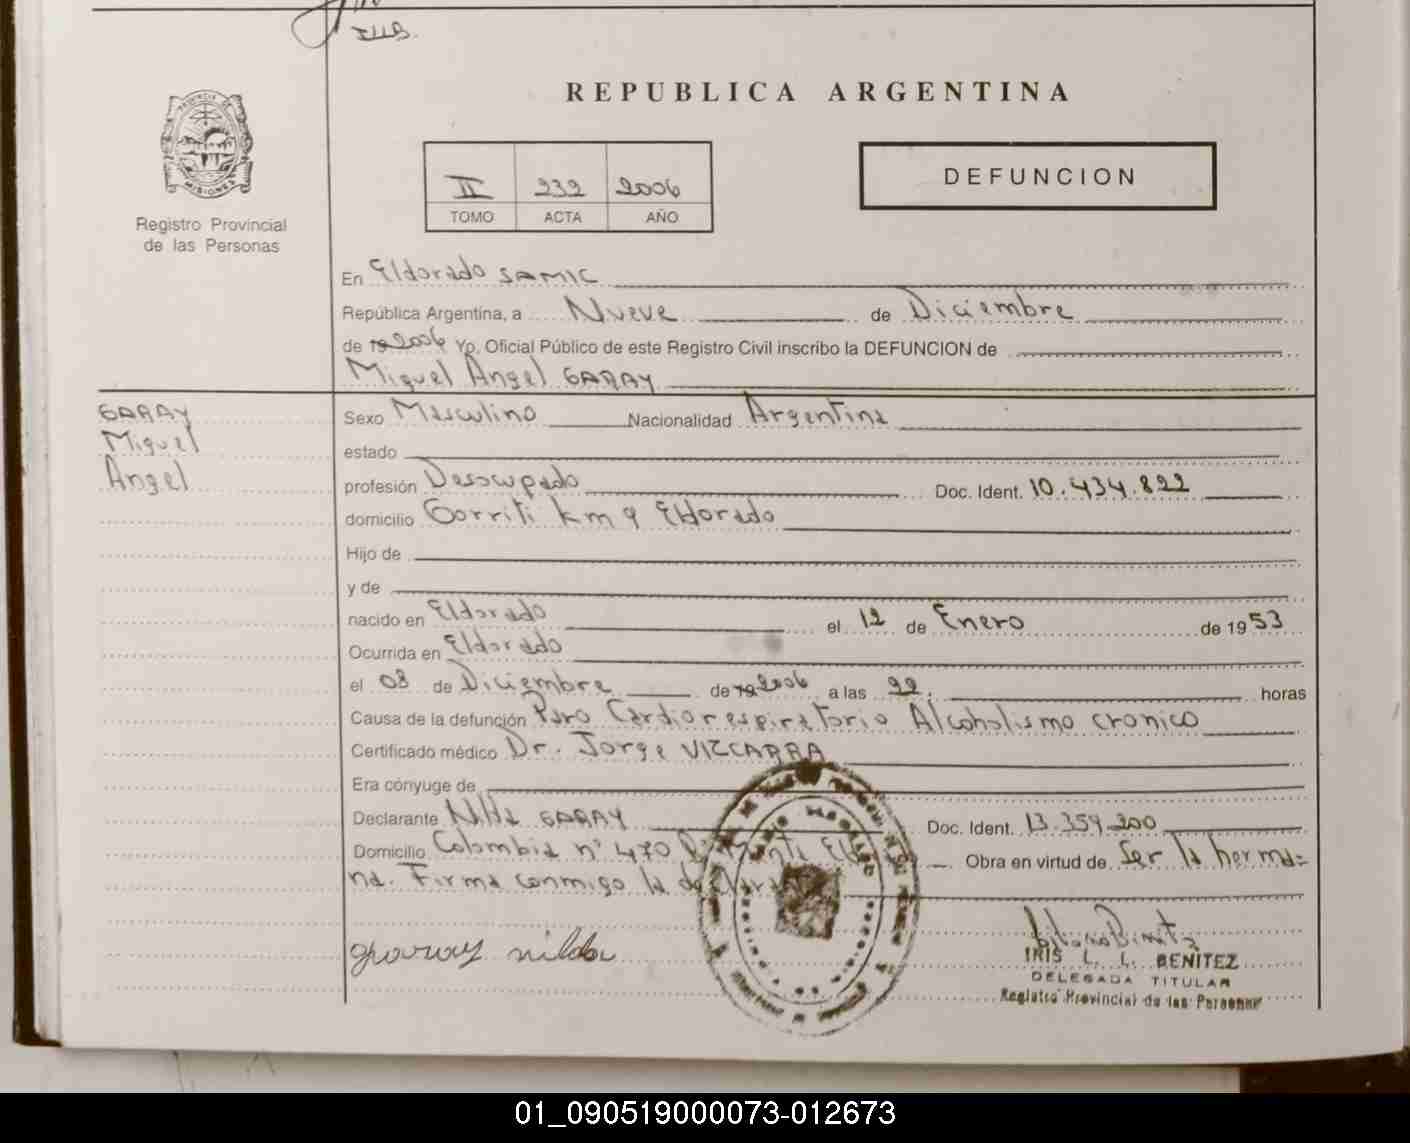 REPUBLICA ARGENTINA
PROVINCIA DE
MISIONES
II 232 2006
TOMO ACTA AÑO
DEFUNCION
Registro Provincial
de las Personas
En Eldorado SAMIC
República Argentina, a Nueve de Diciembre
de 19 2006 Yo, Oficial Público de este Registro Civil inscribo la DEFUNCION de
Miguel Angel GARAY
GARAY
Miguel
Angel
Sexo Masculino Nacionalidad Argentina
estado
profesión Desocupado Doc. Ident. 10.434.822
domicilio Gorriti km 9 Eldorado
Hijo de
y de
nacido en Eldorado el 12 de Enero de 1953
Ocurrida en Eldorado
el 08 de Diciembre de 19 2006 a las 22. horas
Causa de la defunción Paro Cardiorespiratorio Alcoholismo cronico
Certificado médico Dr. Jorge VIZCARRA
Era cónyuge de
Declarante Nilda GARAY Doc. Ident. 13.359.200
Domicilio Colombia n° 470 Obra en virtud de Ser la herma=
na. Firma conmigo la declarante
garay nilda
IRIS L. L. BENITEZ
DELEGADA TITULAR
Registro Provincial de las Personas
01_090519000073-012673